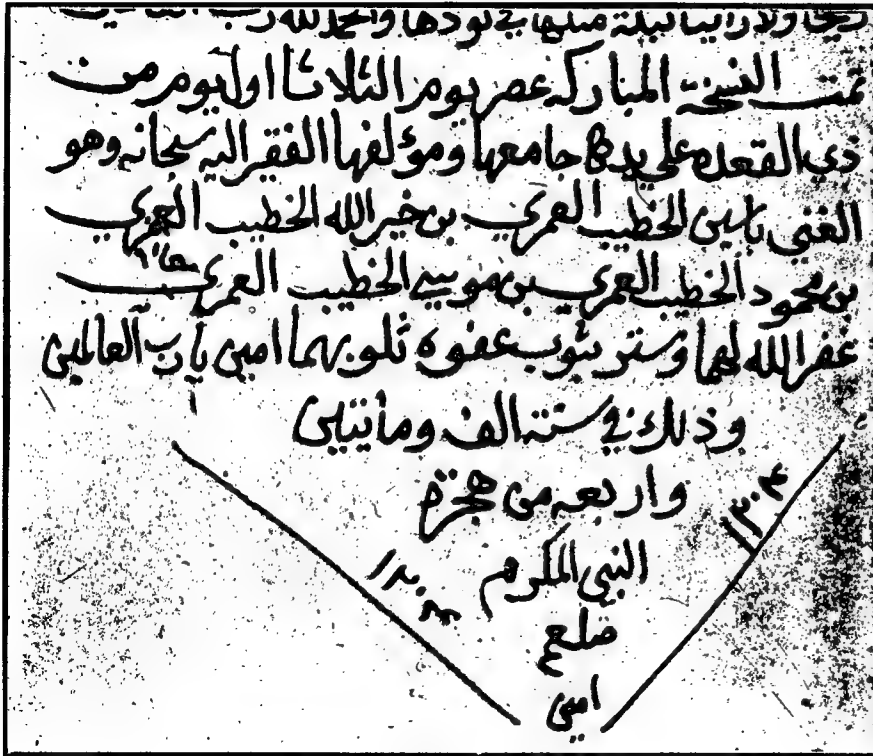 ولا راينا ليلة مثلها في نودها والحمد لله رب
تمت النسخة المباركه عصر يوم الثلاثا اول يوم من
ذي القعده علي يد جامعها ومؤلفها الفقير اليه سبحانه وهو
الغني ياسين الخطيب العمري بن خير الله الخطيب العمري
بن محمود الخطيب العمري بن موسي الخطيب العمري
غفر الله لهما وستر بثوب عفوه ذلوبهما امين يا رب العالمين
وذلك في سنة الف ومايتين
واربعه من هجرة
النبي المكرم
صلعم
امين
١٢٠٤
١٢٠٤